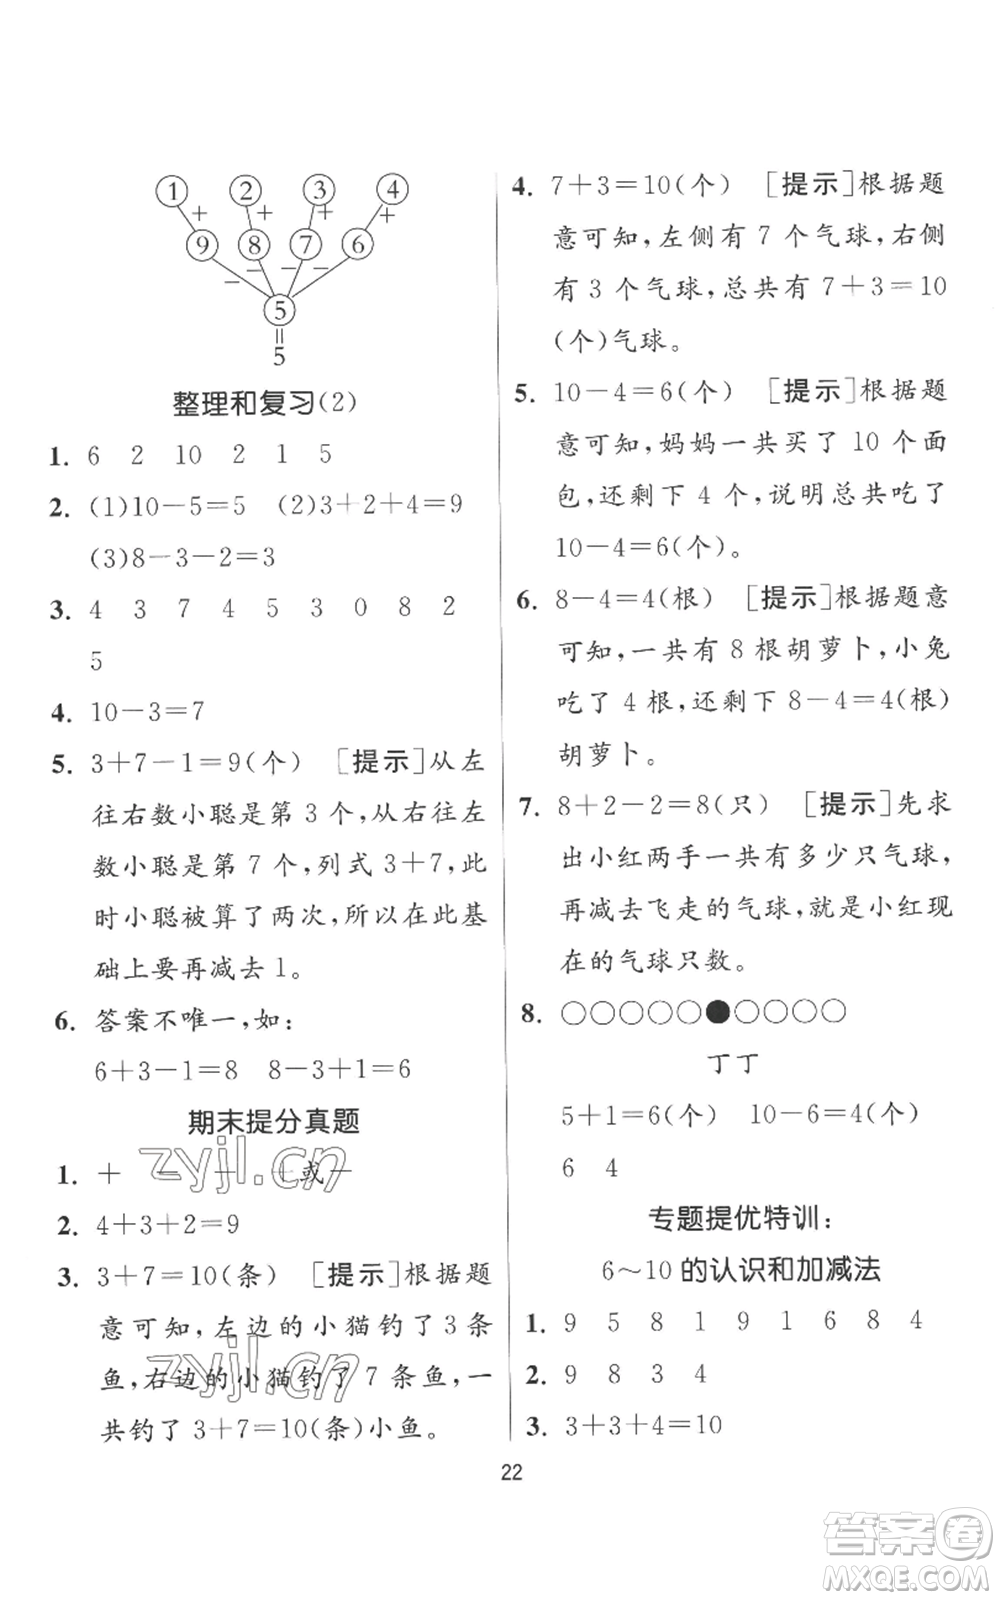 1 2 3 4
+ + + +
9 8 7 6
− − − −
5
=
5
整理和复习(2)
1. 6 2 10 2 1 5
2. (1)10−5=5 (2)3+2+4=9
(3)8−3−2=3
3. 4 3 7 4 5 3 0 8 2
5
4. 10−3=7
5. 3+7−1=9(个) [提示]从左
往右数小聪是第 3 个,从右往左
数小聪是第 7 个,列式 3+7,此
时小聪被算了两次,所以在此基
础上要再减去 1。
6. 答案不唯一,如:
6+3−1=8 8−3+1=6
期末提分真题
1. + − + +或−
2. 4+3+2=9
3. 3+7=10(条) [提示]根据题
意可知,左边的小猫钓了 3 条
鱼,右边的小猫钓了 7 条鱼,一
共钓了 3+7=10(条)小鱼。
zyjl.cn
zyjl.cn
4. 7+3=10(个) [提示]根据题
意可知,左侧有 7 个气球,右侧
有 3 个气球,总共有 7+3=10
(个)气球。
5. 10−4=6(个) [提示]根据题
意可知,妈妈一共买了 10 个面
包,还剩下 4 个,说明总共吃了
10−4=6(个)。
6. 8−4=4(根) [提示]根据题意
可知,一共有 8 根胡萝卜,小兔
吃了 4 根,还剩下 8−4=4(根)
胡萝卜。
7. 8+2−2=8(只) [提示]先求
出小红两手一共有多少只气球,
再减去飞走的气球,就是小红现
在的气球只数。
8. ○○○○○●○○○○
丁丁
5+1=6(个) 10−6=4(个)
6 4
专题提优特训:
6~10 的认识和加减法
1. 9 5 8 1 9 1 6 8 4
2. 9 8 3 4
3. 3+3+4=10
22
答案卷
MXQE.COM